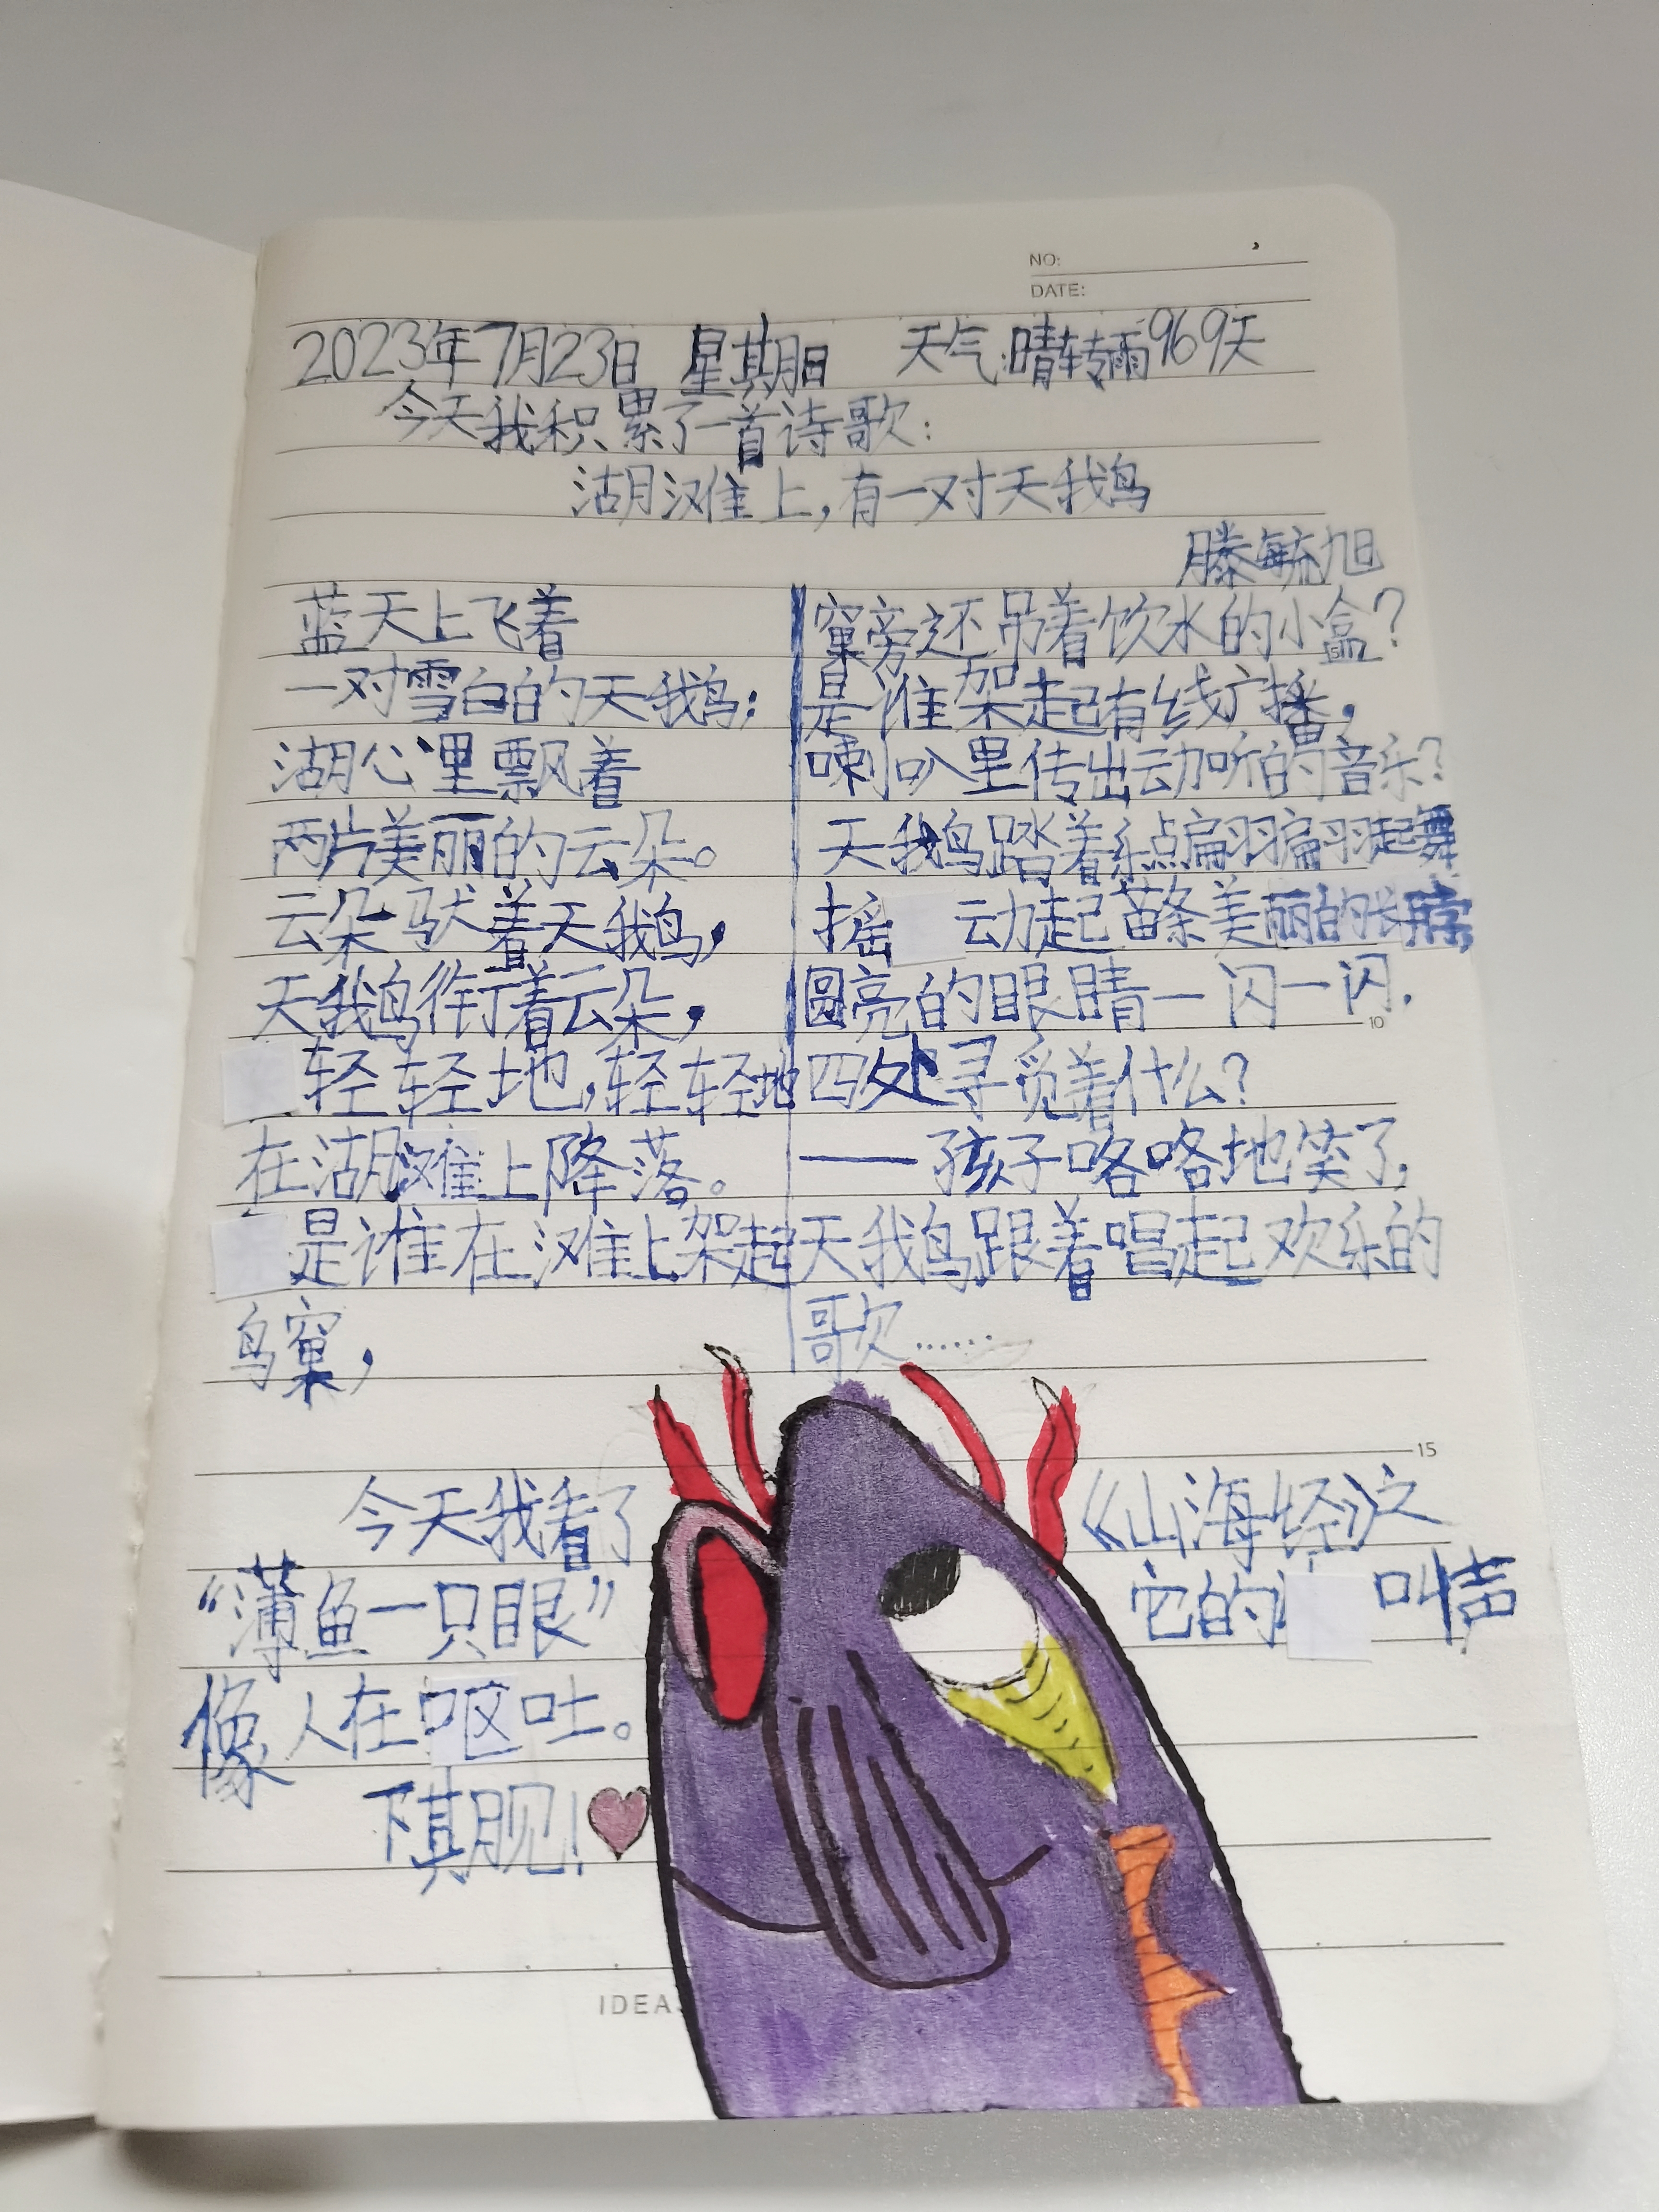 NO:
DATE:
2023年7月23日 星期日 天气:晴转雨969天
今天我积累了一首诗歌:
湖滩上,有一对天鹅
滕毓旭
蓝天上飞着
一对雪白的天鹅;
湖心里飘着
两片美丽的云朵。
云朵驮着天鹅,
天鹅衔着云朵,
轻轻地,轻轻地
在湖滩上降落。
是谁在滩上架起
鸟窠,
窠旁还吊着饮水的小盒?
是谁架起有线广播,
喇叭里传出动听的音乐?
天鹅踏着乐点翩翩起舞
摇动起苗条美丽的长脖,
圆亮的眼睛一闪一闪.
四处寻觅着什么?
——孩子咯咯地笑了,
天鹅跟着唱起欢乐的
歌……
10
15
今天我看了《山海经》之
“薄鱼一只眼”它的叫声
像人在呕吐。
下期见!
IDEAS